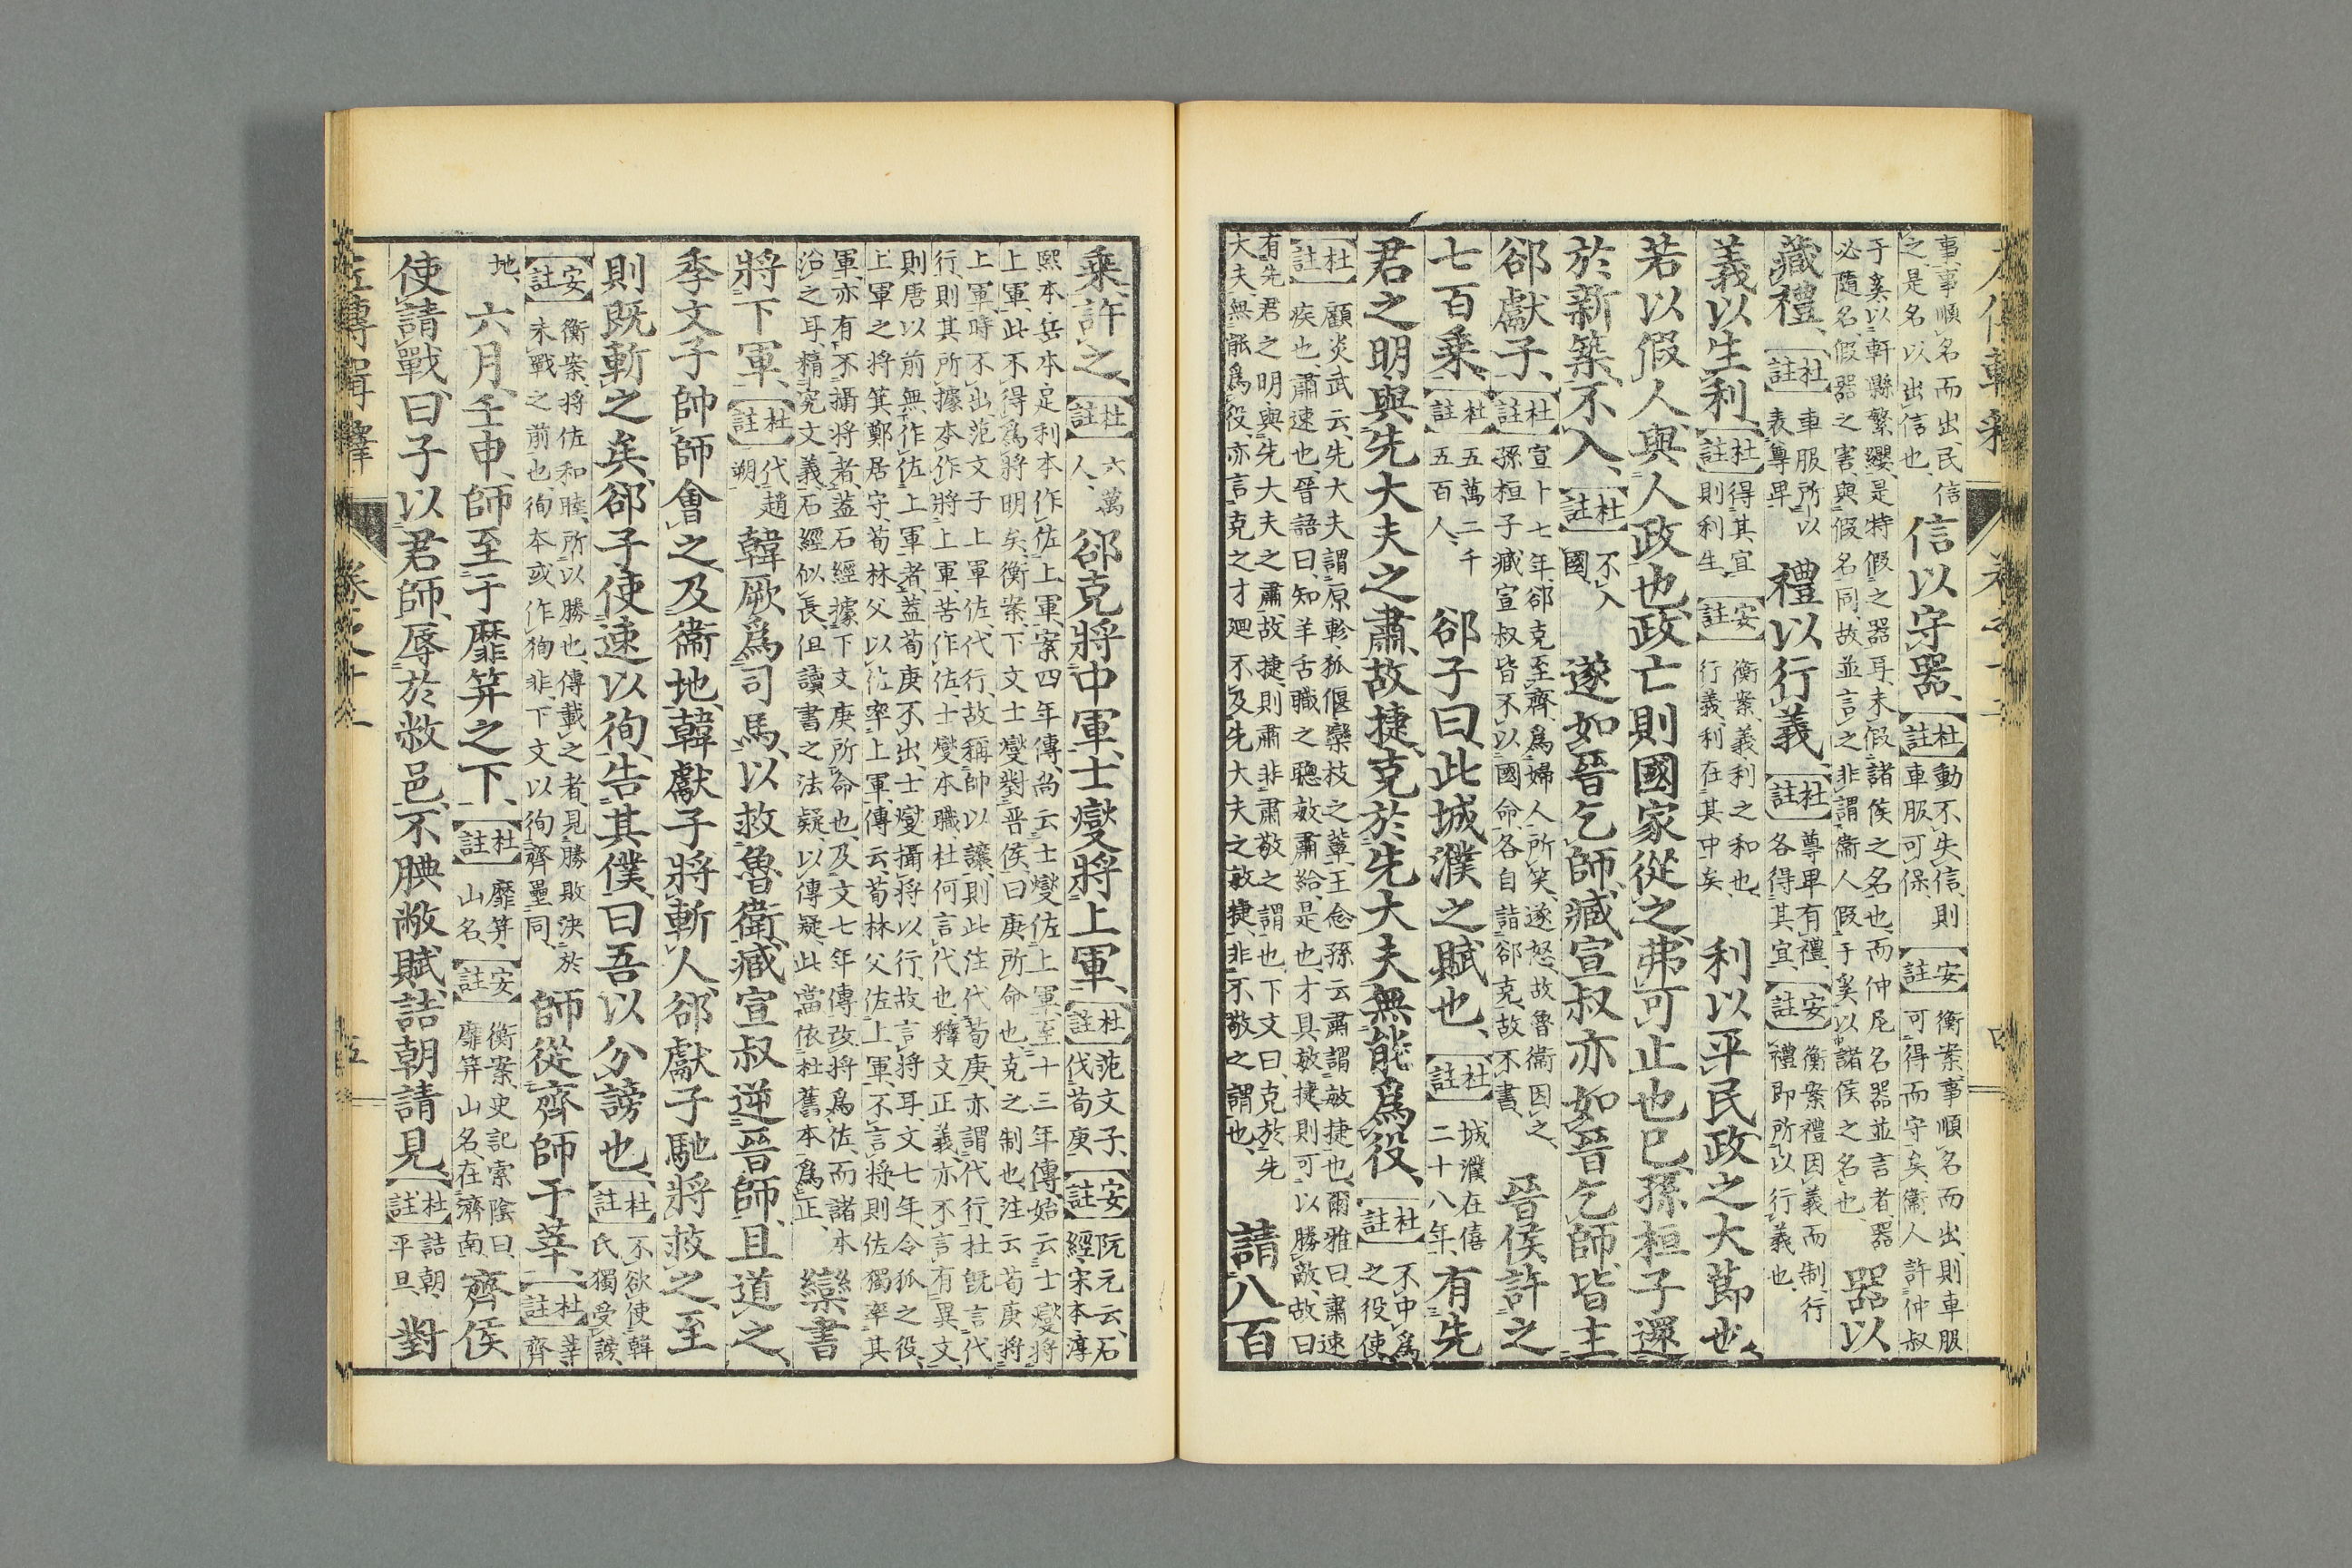 事、事順名而出、民信
之、是名以出信也、
信以守器、【杜註】動不失信、則
車服可保、【安註】衡案、事順名而出、則車服
可得而守矣、衞人許仲叔
于奚以軒縣繁纓、是特假之器耳、未假諸侯之名也、而仲尼名器並言者、器
必隨名、假器之害、與假名同、故並言之、非謂衞人假于奚以諸侯之名也、
器以
藏禮、【杜註】車服所以
表尊卑、
禮以行義、【杜註】尊卑有禮、
各得其宜、【安註】衡案、禮因義而制、行
禮即所以行義也、
義以生利、【杜註】得其宜
則利生、【安註】衡案、義利之和也、
行義、利在其中矣、
利以平民、政之大節也、
若以假人、與人政也、政亡則國家從之、弗可止也已、孫桓子還
於新築、不入、【杜註】不入
國、
遂如晉乞師、臧宣叔亦如晉乞師、皆主
郤獻子、【杜註】宣十七年、郤克至齊、爲婦人所笑、遂怒、故魯衞因之、
孫桓子臧宣叔皆不以國命、各自詣郤克、故不書、
晉侯許之
七百乘、【杜註】五萬二千
五百人、
郤子曰、此城濮之賦也、【杜註】城濮在僖
二十八年、
有先
君之明與先大夫之肅、故捷、克於先大夫無能爲役、【杜註】不中爲
之役使、
【杜註】顧炎武云、先大夫謂原軫、狐偃、欒枝之輩、王念孫云、肅謂敏捷也、爾雅曰、肅速
疾也、肅速也、晉語曰、知羊舌職之聰敏肅給、是也、才具敏捷、則可以勝敵、故曰
有先君之明與先大夫之肅、故捷、則肅非肅敬之謂也、下文曰、克於先
大夫、無能爲役、亦言克之才迴不及先大夫之敏捷、非不敬之謂也、
請八百
乘、許之、【杜註】六萬
人、
郤克將中軍、士燮將上軍、【杜註】范文子、
代荀庚【安註】阮元云、石
經、宋本、淳
熙本、岳本、足利本作佐上軍、案四年傳、尚云士燮佐上軍、至十三年傳、始云士燮將
上軍、此不得爲將明矣、衡案、下文士燮對晉侯、曰庚所命也、克之制也、注云荀庚將
上軍、時不出、范文子上軍佐、代行、故稱帥以讓、則此注代荀庚、亦謂代行、杜旣言代
行、則其所據本作將上軍、苦作佐、士燮本職、杜何言代也、釋文正義亦不言有異文、
則唐以前無作佐上軍者、蓋荀庚不出、士燮攝將以行、故言將耳、文七年、令狐之役、
上軍之將箕鄭居守、荀林父以佐率上軍、傳云、荀林父佐上軍、不言將、則佐獨率其
軍、亦有不攝將者、蓋石經據下文庚所命也、及文七年傳、改將爲佐、而諸本
沿之耳、精究文義、石經似長、但讀書之法、疑以傳疑、此當依杜舊本爲正、
欒書
將下軍、【杜註】代趙
朔
韓厥爲司馬、以救魯衞、臧宣叔逆晉師、且道之、
季文子帥師會之、及衞地、韓獻子將斬人、郤獻子馳、將救之、至
則既斬之矣、郤子使速以徇、告其僕、曰、吾以分謗也、【杜註】不欲使韓
氏獨受謗、
【安註】衡案、將佐和睦、所以勝也、傳載之者、見勝敗決於
未戰之前也、徇本或作狥、非、下文以徇齊壘同、
師從齊師于莘、【杜註】莘
齊
地、
六月、壬申、師至于靡筓之下、【杜註】靡筓、
山名、【安註】衡案、史記索隂曰、
靡筓山名、在濟南、
齊侯
使請戰、曰、子以君師、辱於敝邑、不腆敝賦、詰朝請見、【杜註】詰朝、
平旦、
對
左傳輯釋 卷之十二 五